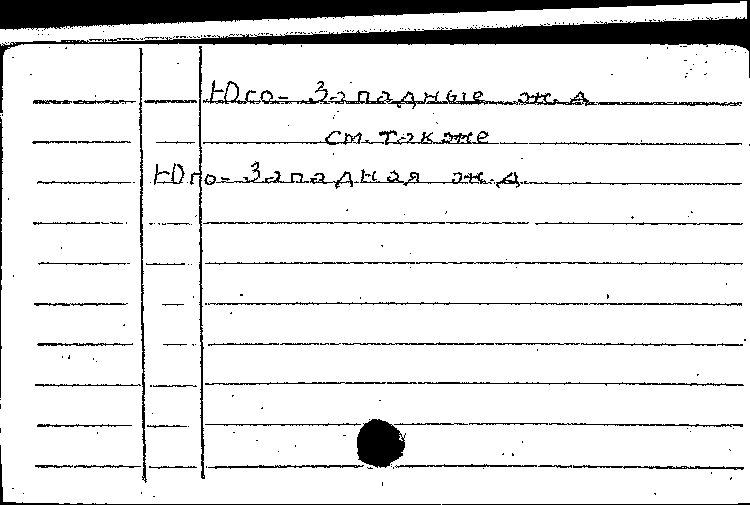 Юго-Западные ж.д
см. также
Юго-Западная ж.д.